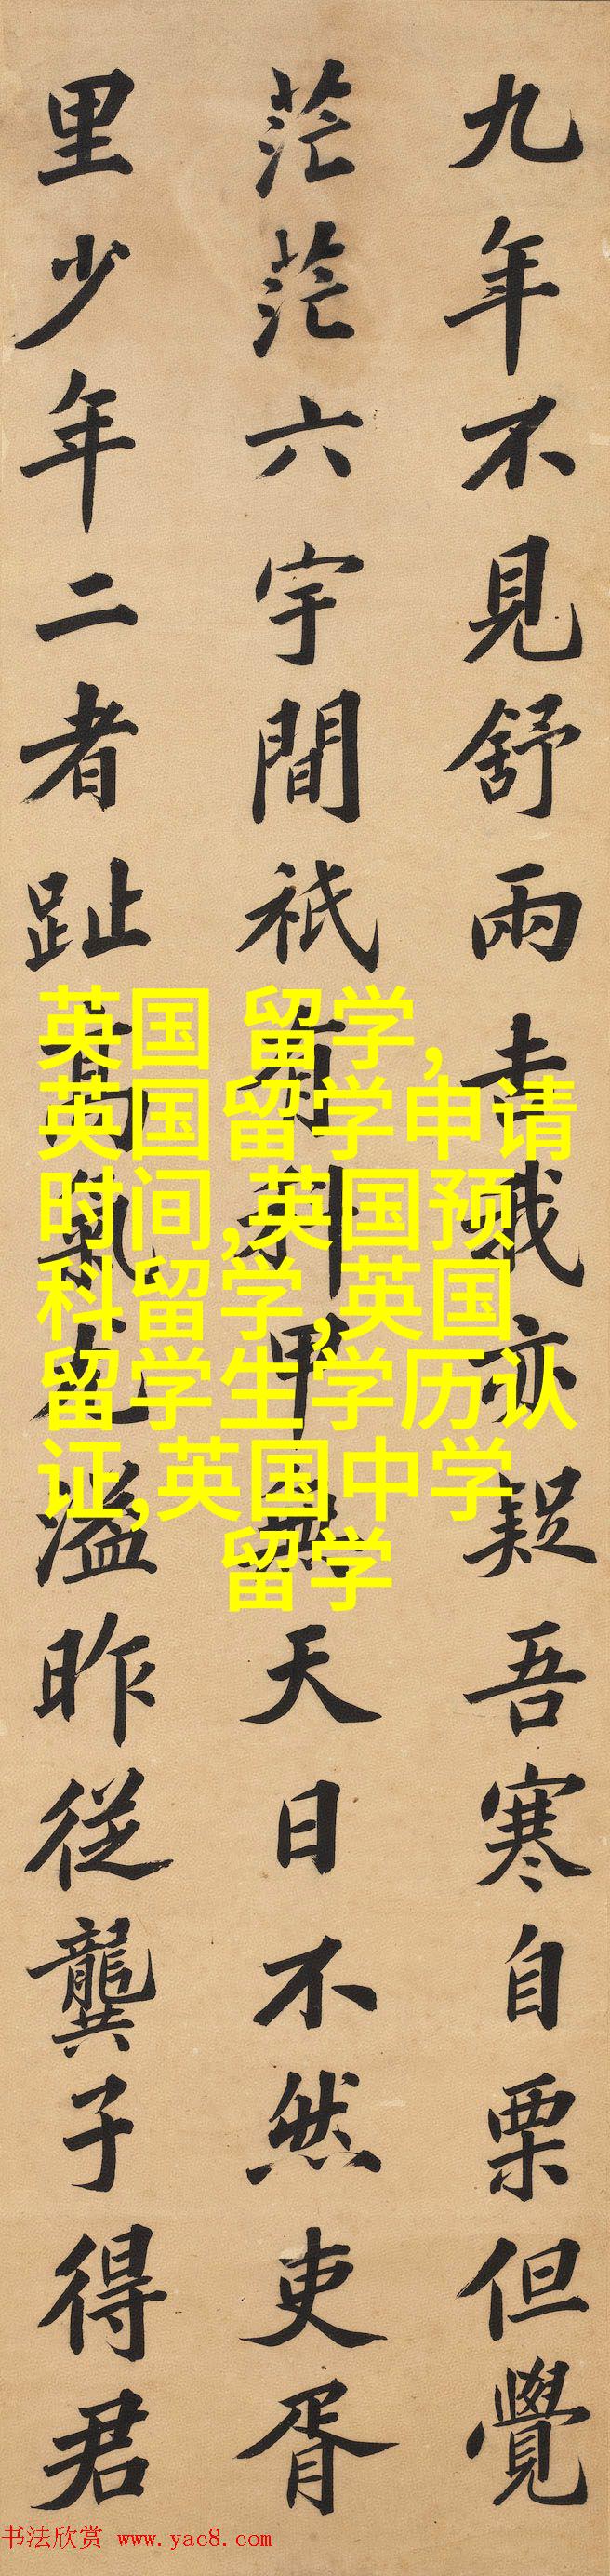 九年不見舒兩 我亦疑吾寒自栗但覺
茫茫六宇間祇有科甲無天日不然吏胥
里少年二者趾高氣 溢昨従龔子得君
英国 留学,
英国留学申请
时间,英国预
科留学,英国
留学生学历认
证,英国中学
留学
书法欣赏 www.yac8.com